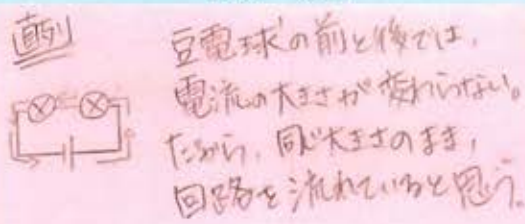 直列
豆電球の前と後では、
電流の大きさが変わらない。
だから、同じ大きさのまま、
回路を流れていると思う。